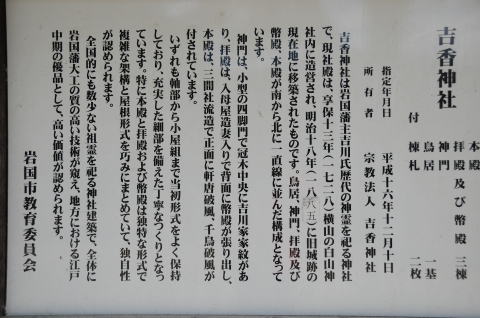 吉香神社
本殿
拝殿及び幣殿 三棟
神門
鳥居 一基
付 棟札 二枚
指定年月日 平成十六年十二月十日
所有者 宗教法人 吉香神社
吉香神社は岩国藩主吉川氏歴代の神霊を祀る神社
で、現社殿は、享保十三年(一七二八)横山の白山神
社内に造営され、明治十八年(一八八五)に旧城跡の
現在地に移築されたものです。鳥居、神門、拝殿及び
幣殿、本殿が南から北に一直線に並んだ構成となって
います。
神門は、小型の四脚門で冠木中央に吉川家家紋があ
り、拝殿は、入母屋造妻入りで背面に幣殿が張り出し、
本殿は、三間社流造で正面に軒唐破風、千鳥破風が
付されています。
いずれも軸部から小屋組まで当初形式をよく保持
しており、充実した細部を備えた丁寧なつくりとなっ
ています。特に本殿と拝殿および幣殿は独特な形式で
複雑な架構と屋根形式を巧みにまとめていて、独自性
が認められます。
全国的にも数少ない祖霊を祀る神社建築で、全体に
岩国藩大工の質の高い技術が窺え、地方における江戸
中期の優品として、高い価値が認められます。
岩国市教育委員会